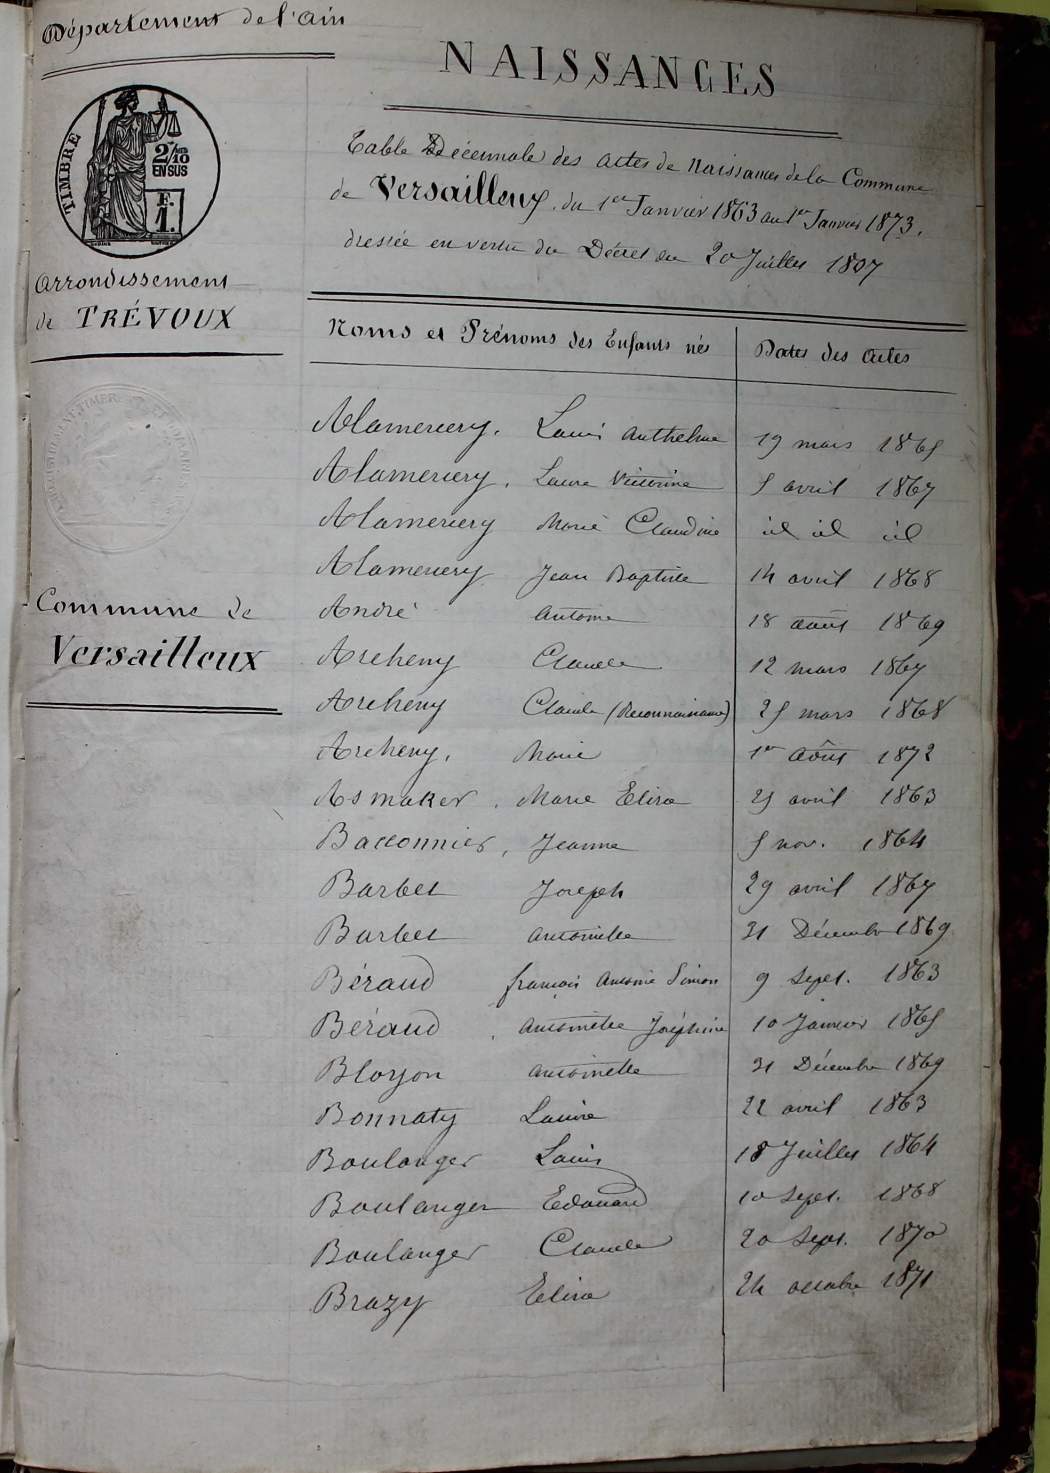 Département de l'Ain
TIMBRE
2/10
EN SUS
F.
1.
Arrondissement
de TRÉVOUX
Commune de
Versailleux
NAISSANCES
Table Décennale des actes de Naissances de la Commune
de Versailleux, du 1er Janvier 1863 au 1er Janvier 1873,
dressée en vertu du Décret du 20 Juillet 1807
Noms et Prénoms des Enfants nés | Dates des Actes
Alamercery, Louis Anthelme 19 mars 1865
Alamercery, Laure Victorine 5 avril 1867
Alamercery Marie Claudine id id id
Alamercery Jean Baptiste 14 avril 1868
André Antoine 18 août 1869
Archeny Claude 12 mars 1867
Archeny Claude (Reconnaissance) 25 mars 1868
Archeny, Marie 1er Août 1872
Asmaker, Marie Elisa 25 avril 1863
Bacconnier, Jeanne 5 nov. 1864
Barbet Joseph 29 avril 1867
Barbet Antoinette 31 Décembre 1869
Béraud françois Antoine Simon 9 Sept. 1863
Béraud, Antoinette Joséphine 10 Janvier 1865
Bloyon Antoinette 31 Décembre 1869
Bonnaty Louise 22 avril 1863
Boulanger Louis 18 Juillet 1864
Boulanger Edouard 10 Sept. 1868
Boulanger Claude 20 Sept. 1870
Brazy Elisa 24 octobre 1871